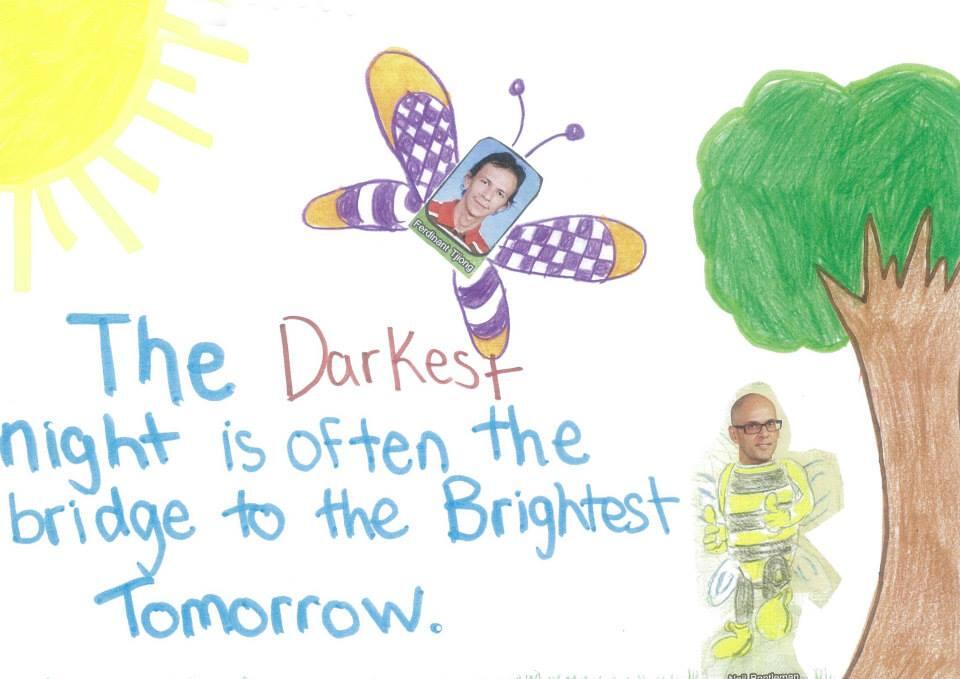 Ferdinant Tjiong
The Darkest
night is often the
bridge to the Brightest
Tomorrow.